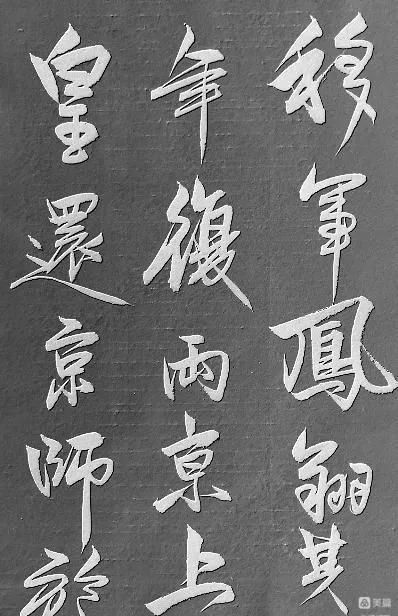 移軍鳳翔其
年復兩京上
皇還京師於
美篇